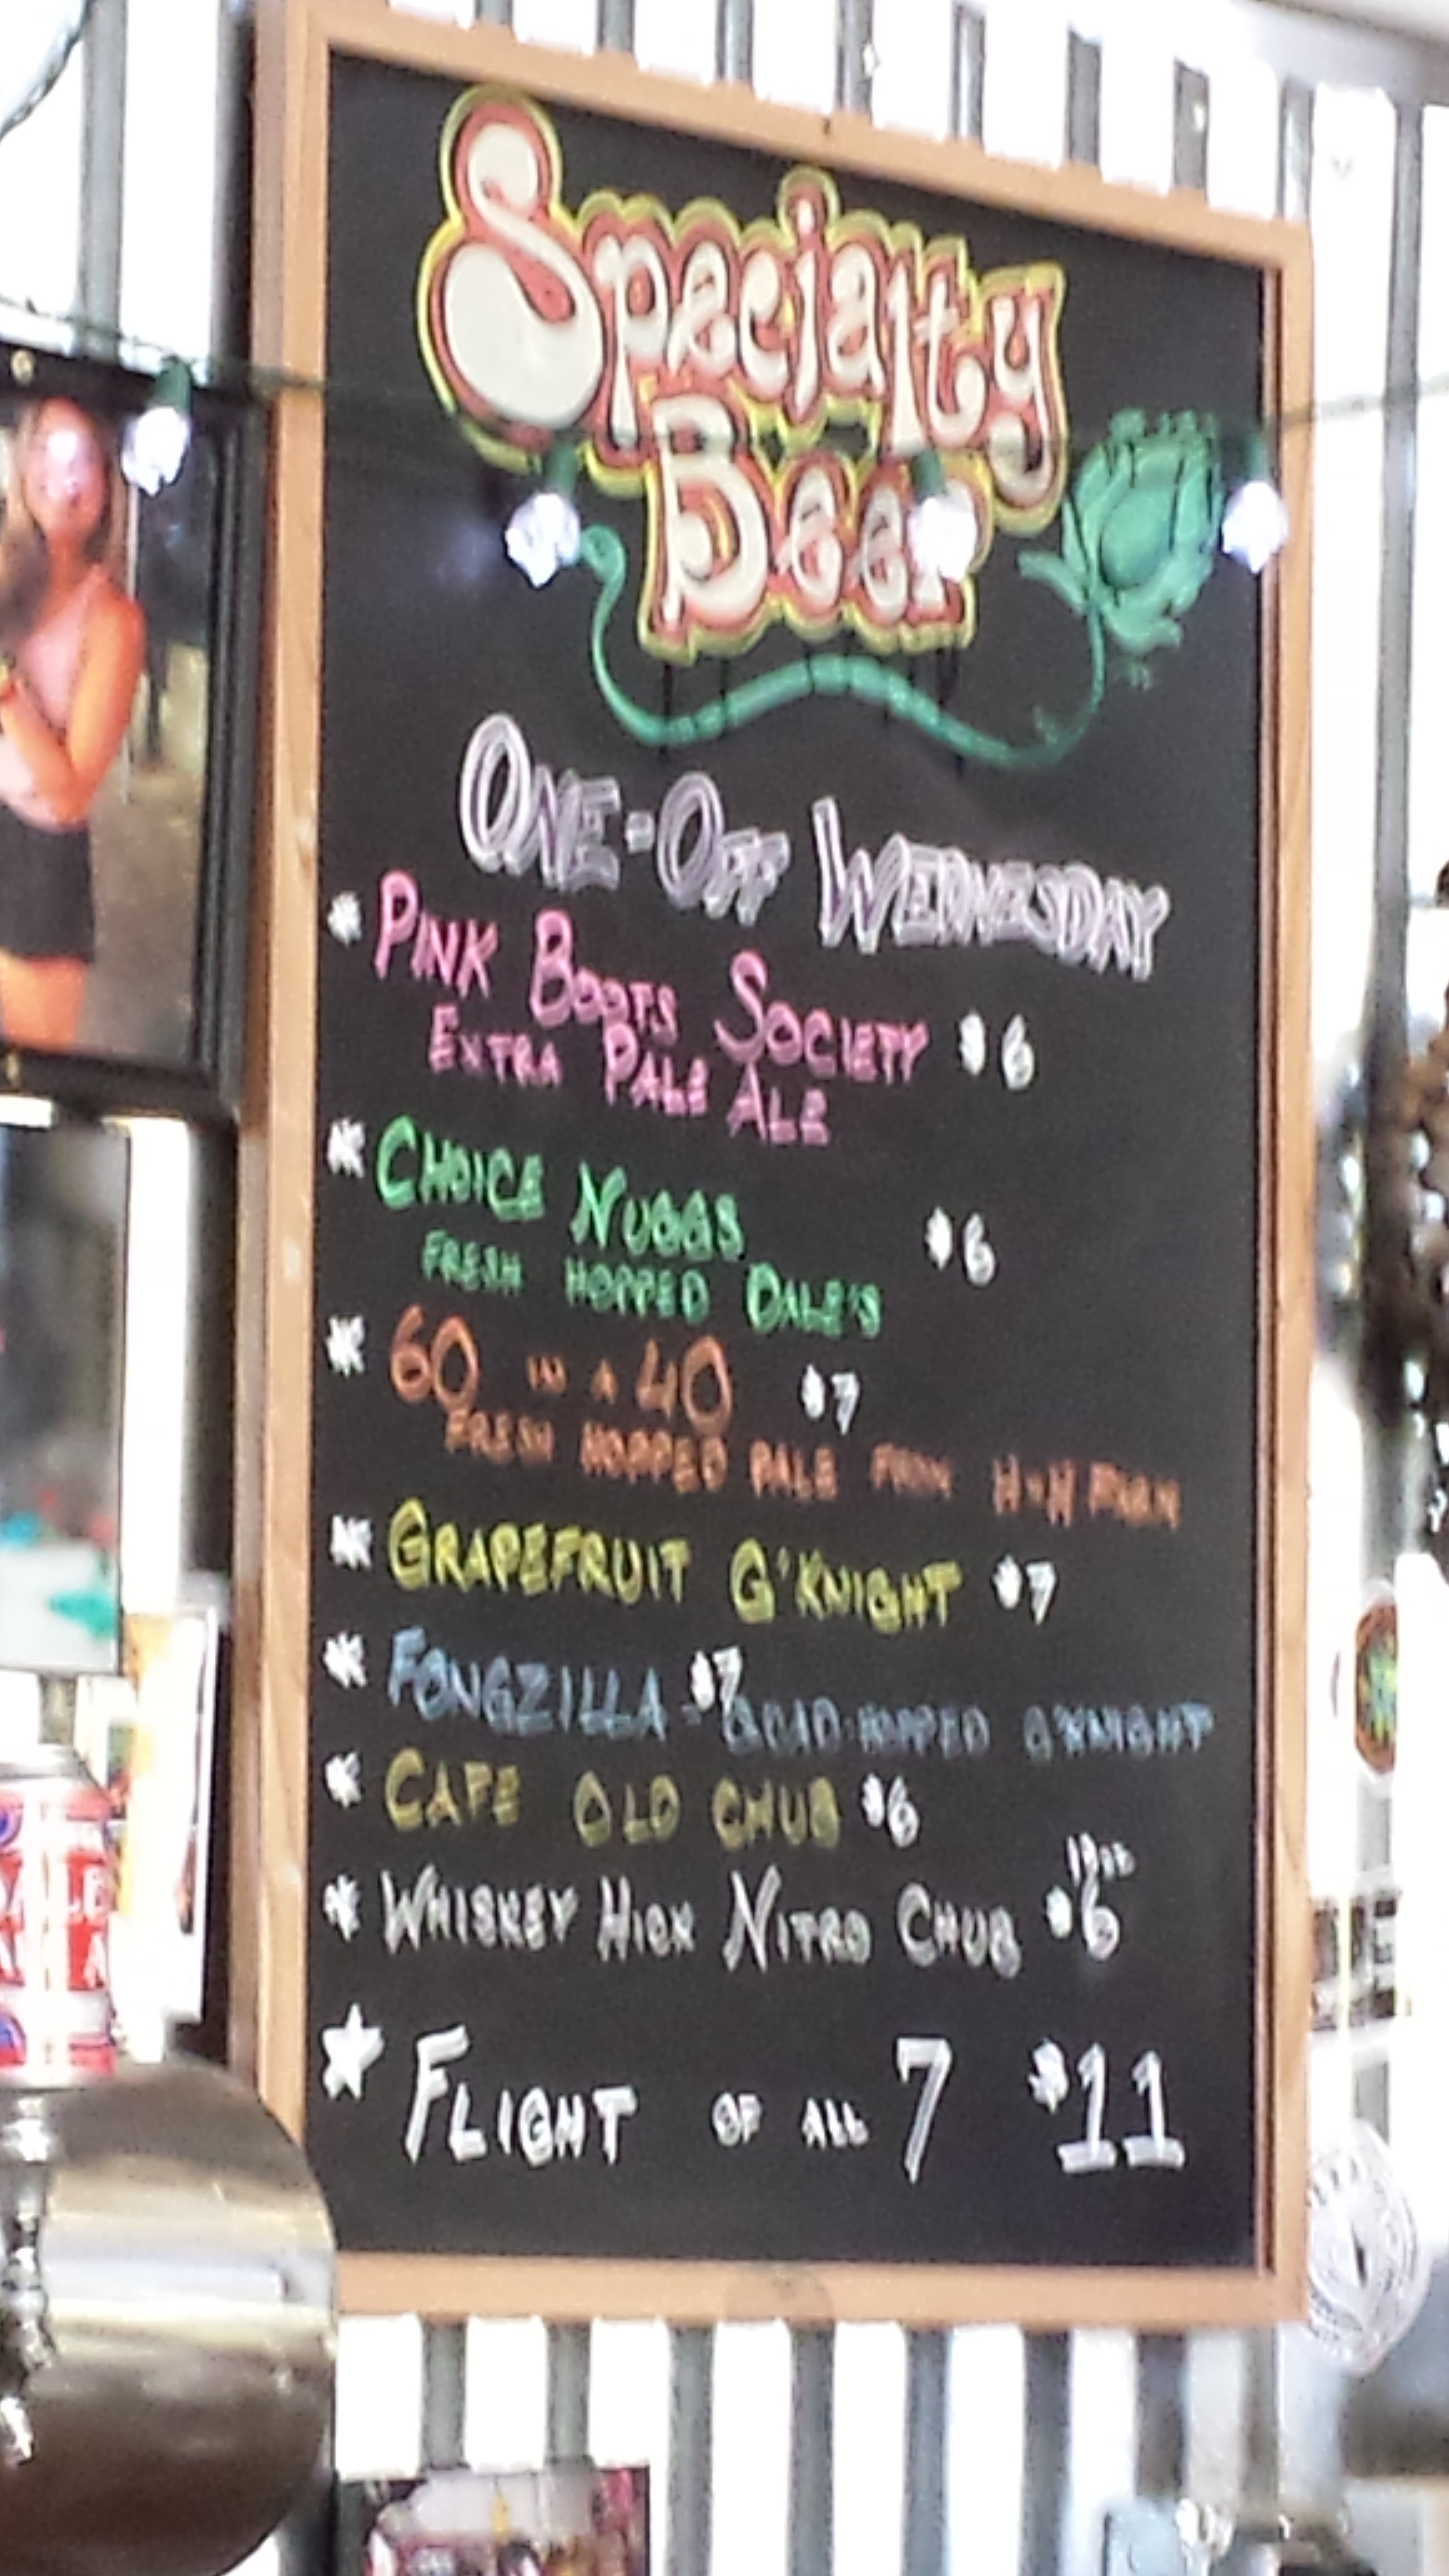 Specialty
Beer
ONE-OFF WEDNESDAY
* PINK BOOTS SOCIETY $6
EXTRA PALE ALE
* CHOICE NUGGS $6
FRESH HOPPED DALE'S
* 60 IN A 40 $7
FRESH HOPPED PALE FROM H+H FARM
* GRAPEFRUIT G'KNIGHT $7
* FONGZILLA - $7 QUAD-HOPPED G'KNIGHT
* CAFE OLD CHUB $6
* WHISKEY HIGH NITRO CHUB $6
★ FLIGHT OF ALL 7 $11